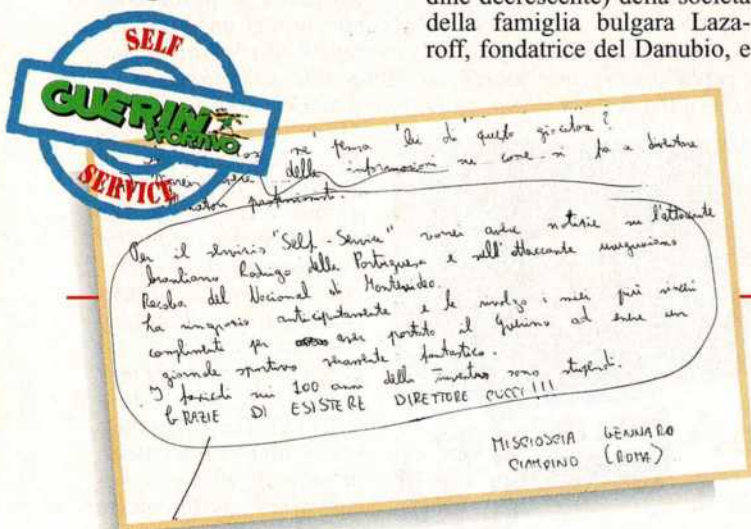 dine decrescente) della società
della famiglia bulgara Laza-
roff, fondatrice del Danubio, e
SELF
GUERIN
SPORTIVO
SERVICE
ne pensa lei di questo giocatore?
delle informazioni su come si fa a diventare
professionisti.
Per il servizio "Self-Service" vorrei avere notizie su l'attaccante
brasiliano Rodrigo della Portuguesa e sull'attaccante uruguaiano
Recoba del Nacional di Montevideo.
La ringrazio anticipatamente e le rivolgo i miei più sinceri
complimenti per aver portato il Guerino ad essere un
giornale sportivo veramente fantastico.
I fascicoli sui 100 anni della Juventus sono stupendi.
GRAZIE DI ESISTERE DIRETTORE CUCCI!!!
MISCIOSCIA GENNARO
CIAMPINO (ROMA)